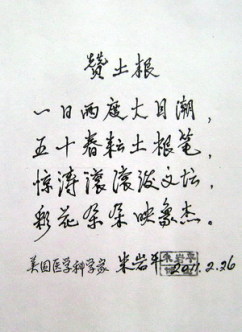 赞土根
一日两度大目潮，
五十春耘土根笔，
惊涛滚滚泼文坛，
彩花朵朵映象杰。
美国医学科学家 朱岩平 2011.2.26